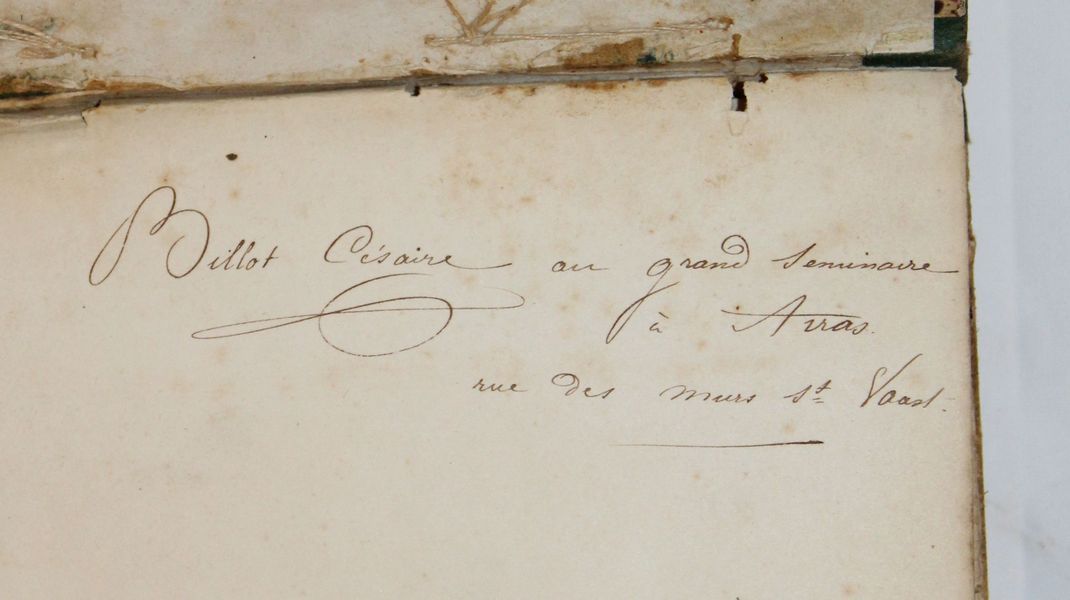 Billot Césaire au grand Seminaire
à Arras.
rue des murs St Vaast.